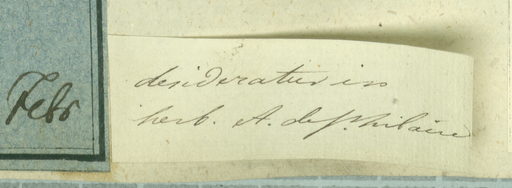 Febr
desideratur in
herb. A. de St. hilaire